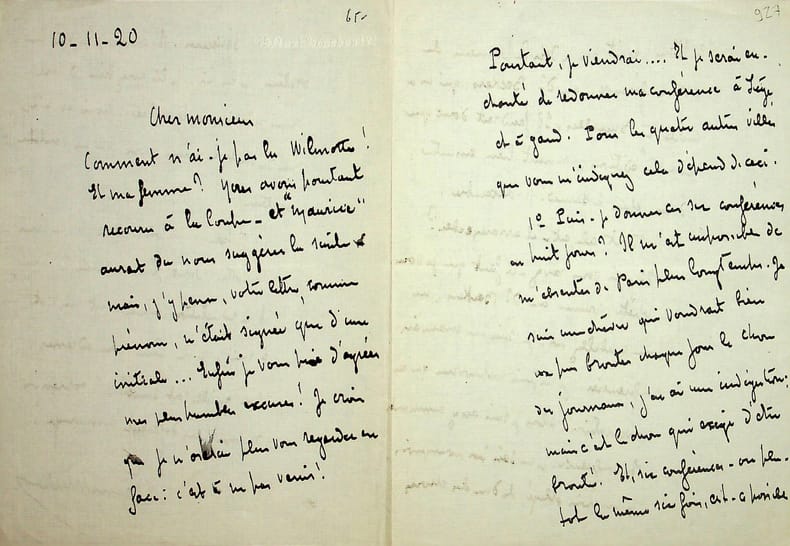 65-
10-11-20
Cher monsieur
Comment n'ai-je pas lu Wilmotte!
Et ma femme? Nous avons pourtant
recouru à la loupe - et "Maurice"
aurait du nous suggérer la suite
mais, j'y pense, votre lettre, comme
prénom, n'était signée que d'une
initiale... Enfin je vous prie d'agréer
mes plus humbles excuses! Je crois
que je n'oserai plus vous regarder en
face: c'est à ne pas venir!
927
Pourtant, je viendrai.... Et je serai en-
chanté de redonner ma conférence à Liége
et à gand. Pour les quatre autres villes
que vous m'indiquez cela dépend de ceci.
1º Puis-je donner ces six conférences
en huit jours? Il m'est impossible de
m'absenter de Paris plus longtemps. Je
suis une chèvre qui voudrait bien
ne pas brouter chaque jour le chou
du journaux, j'en ai une indigestion:
mais c'est le chou qui exige d'être
brouté. Et, six conférences - ou plu-
tot la même six fois, est-ce possible